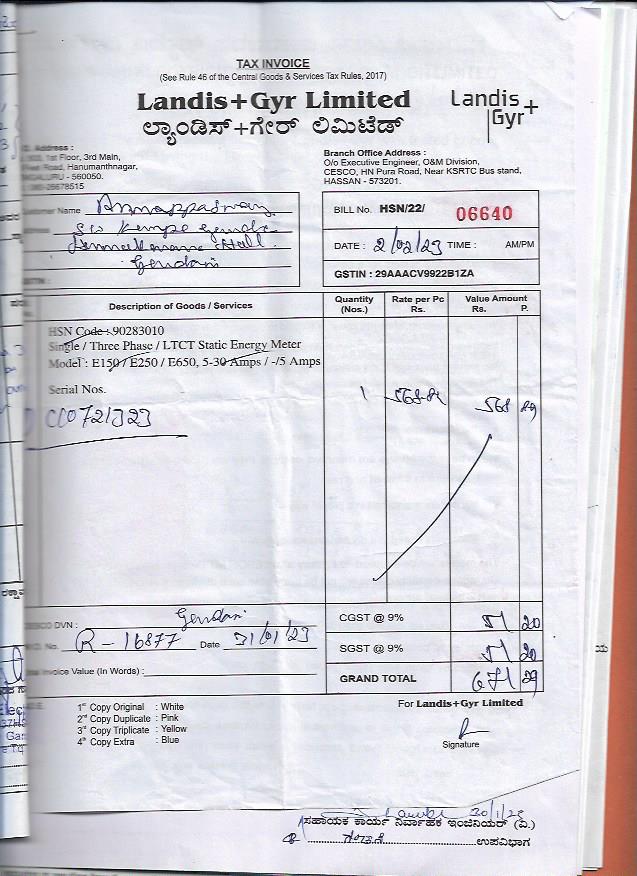 TAX INVOICE
(See Rule 46 of the Central Goods & Services Tax Rules, 2017)
Landis+Gyr Limited
ಲ್ಯಾಂಡಿಸ್+ಗೇರ್ ಲಿಮಿಟೆಡ್
Landis+
Gyr
Address :
1st Floor, 3rd Main,
Road, Hanumanthnagar,
- 560050.
26678515
Branch Office Address :
O/o Executive Engineer, O&M Division,
CESCO, HN Pura Road, Near KSRTC Bus stand,
HASSAN - 573201.
Customer Name
BILL No. HSN/22/ 06640
DATE : 2/02/23 TIME : AM/PM
GSTIN : 29AAACV9922B1ZA
Description of Goods / Services
Quantity (Nos.)
Rate per Pc Rs.
Value Amount Rs. P.
HSN Code : 90283010
Single / Three Phase / LTCT Static Energy Meter
Model : E150 / E250 / E650, 5-30 Amps / -/5 Amps
Serial Nos.
1 568 89
CESCO DVN :
No. R-16877 Date 31/01/23
Invoice Value (In Words) :
CGST @ 9% 51 20
SGST @ 9% 51 20
GRAND TOTAL 671 29
1st Copy Original : White
2nd Copy Duplicate : Pink
3rd Copy Triplicate : Yellow
4th Copy Extra : Blue
For Landis+Gyr Limited
Signature
ಸಹಾಯಕ ಕಾರ್ಯ ನಿರ್ವಾಹಕ ಇಂಜಿನಿಯರ್ (ವಿ.)
ಉಪವಿಭಾಗ